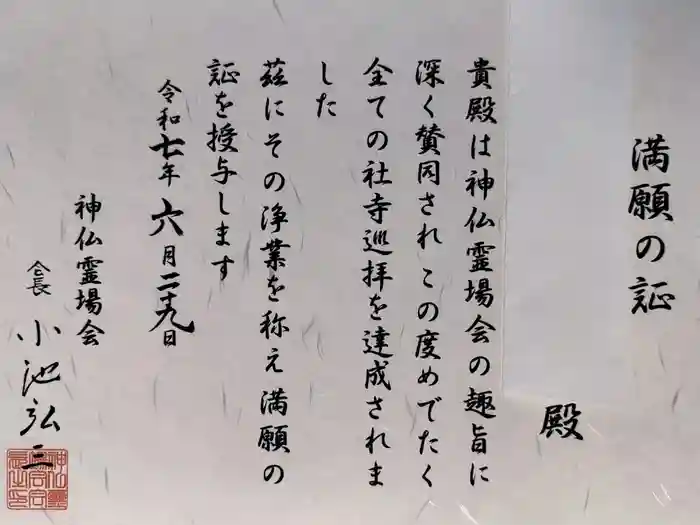 満願の証
殿
貴殿は神仏霊場会の趣旨に
深く賛同され この度めでたく
全ての社寺巡拝を達成されま
した
茲にその浄業を称え 満願の
証を授与します
令和七年 六月二十九日
神仏霊場会
会長 小池弘三